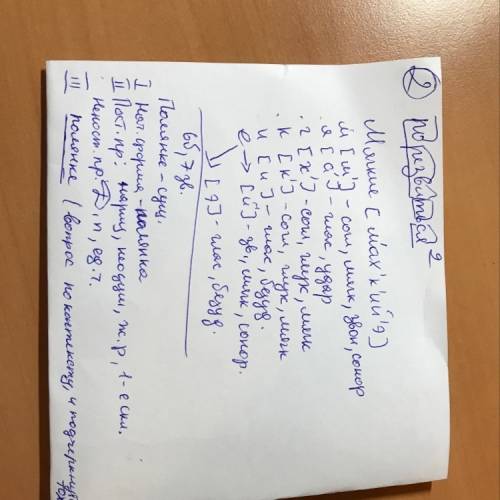 ② порезвиться²
Мягкие [мах'к'ий'э]
м [м'] - согл, мягк, звон, сонор
я [а'] - глас, удар
г [х'] - согл, глух, мягк
к [к'] - согл, глух, мягк
и [и] - глас, безуд.
е → [й'] - зв, мягк, сонор.
[э] - глас, безуд.
6б, 7 зв.
Полянке - сущ.
I Нач. форма - полянка
II Пост. пр: нариц, неодуш, ж.р, 1-е скл.
Непост. пр: Д.п, ед.ч.
III полянке (вопрос по контексту, и подчеркнуть